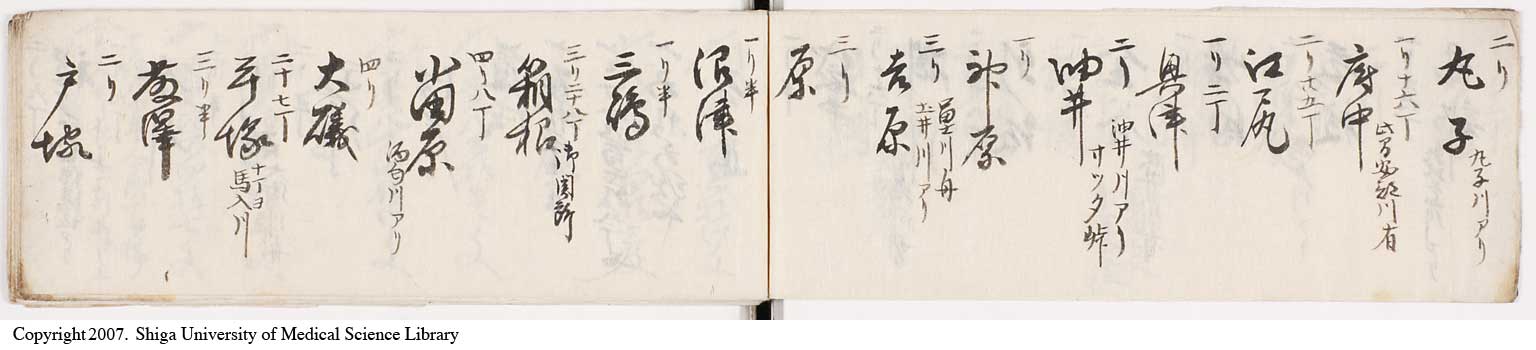 二リ
丸子 丸子川アリ
一リ十六丁
府中 此間安部川有
二リ廿五丁
江尻
一リ二丁
奥津
二リ
油井 油井川アリ サツタ峠
一リ
神原
三リ
吉原 冨士川舟
三リ
原
一リ半
沼津
一リ半
三嶋
三リ二十八丁
箱根 御関所
四リ八丁
小田原 酒匂川アリ
四リ
大磯
二十七丁
平塚 十丁ヨ 馬入川
三リ半
藤澤
二リ
戸塚
Copyright 2007. Shiga University of Medical Science Library